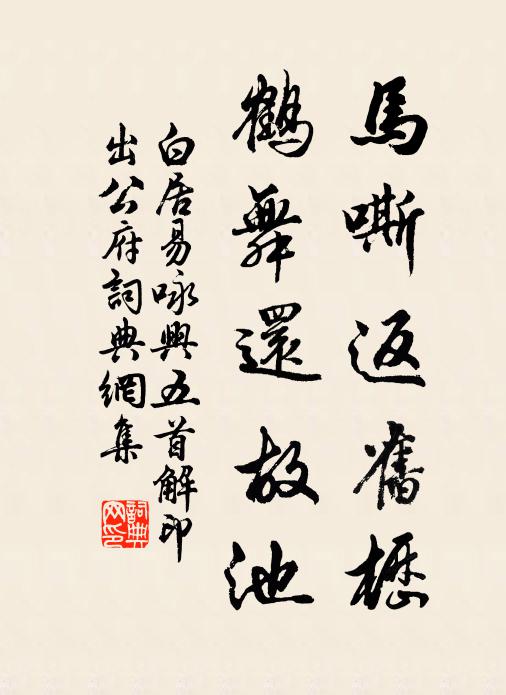 馬嘶返舊櫪
鶴舞還故池
白居易咏興五首解印
出公府詞典網集
詞典
网印